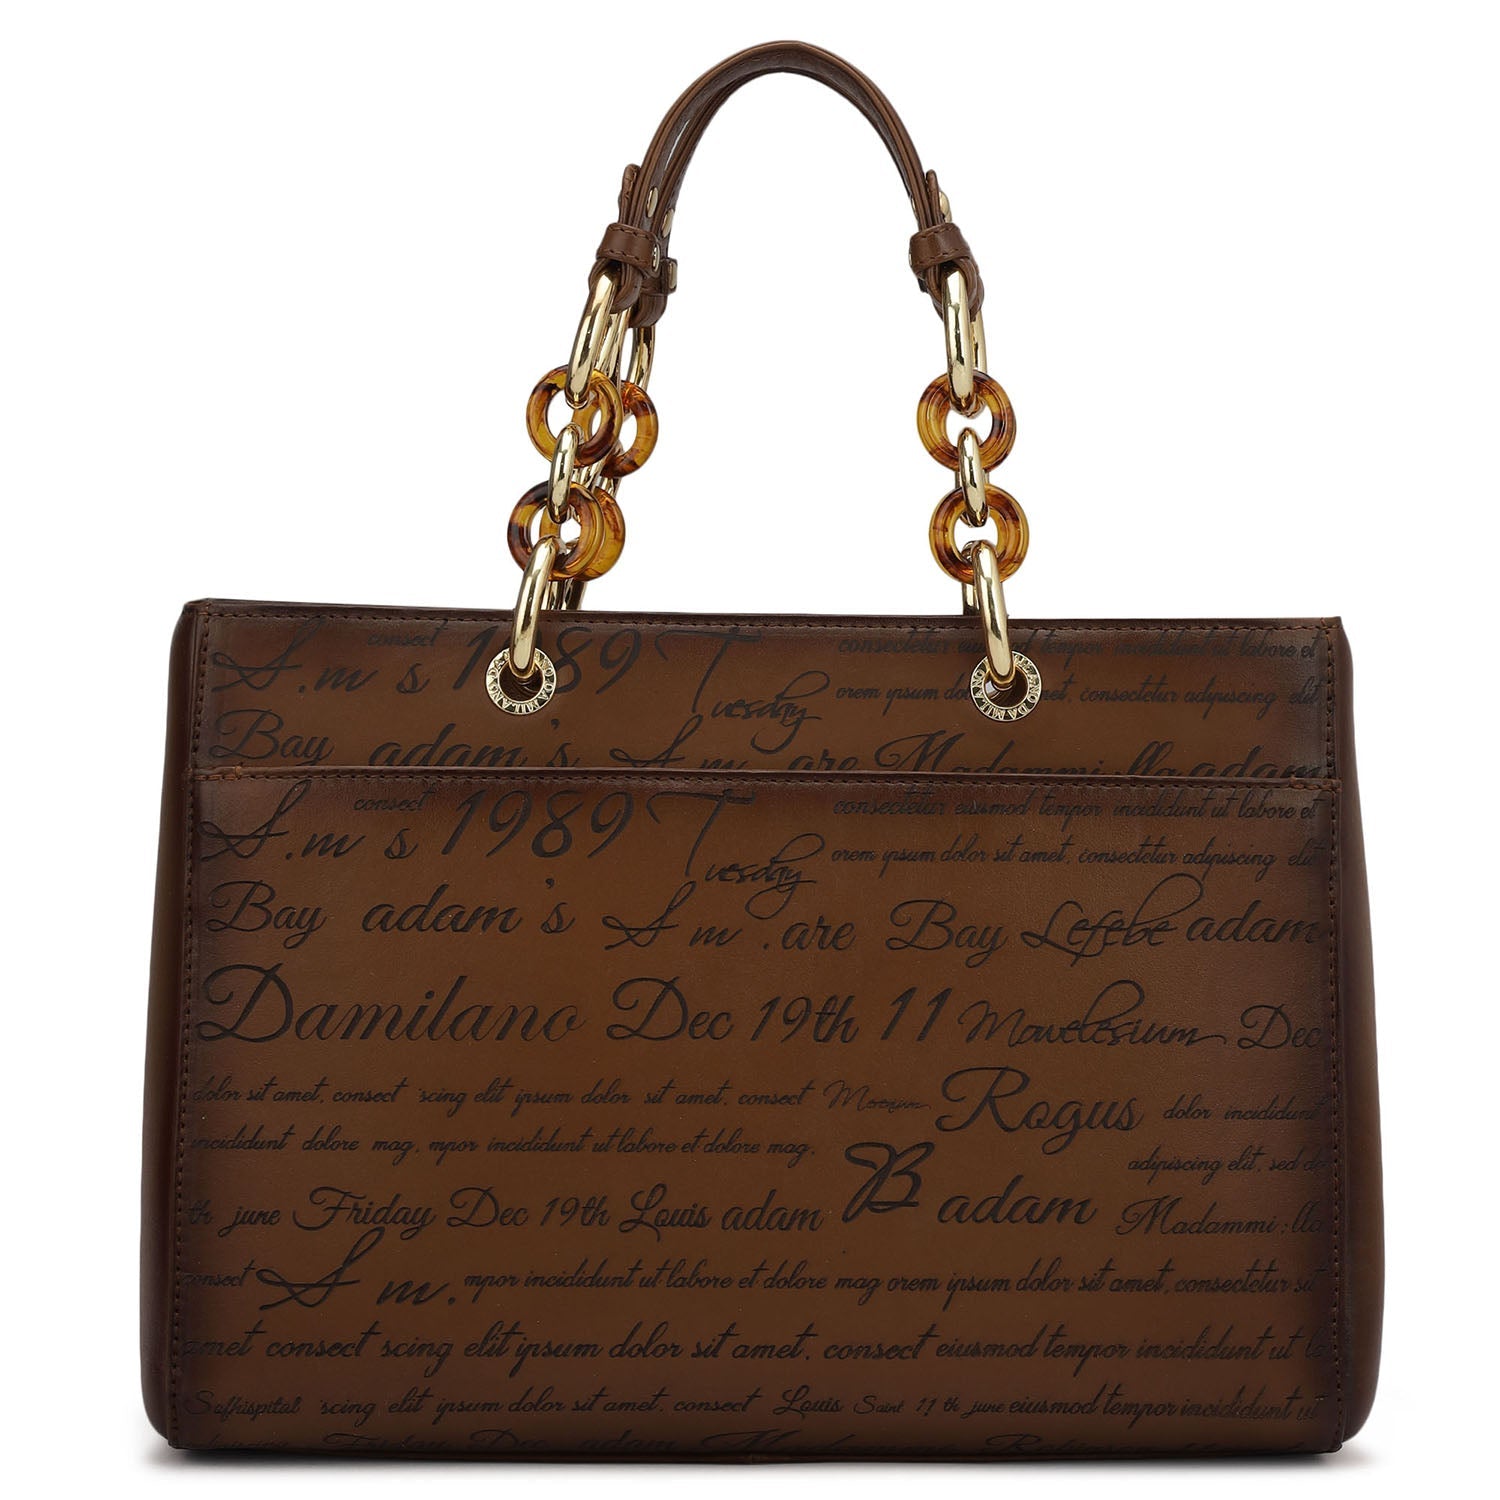 S.m's consect 1989 Tuesday consectetur eiusmod tempor incididunt ut labore et
orem ipsum do met, consectetur adipiscing elit
Bay adam's S m are Madammi lla adam
MILANO DA MILANO DA
S.m's consect 1989 Tuesday consectetur eiusmod tempor incididunt ut labore et
orem ipsum dolor sit amet, consectetur adipiscing elit
Bay adam's S m . are Bay Lefebe adam
Damilano Dec 19th 11 Mowelesium Dec
dolor sit amet, consect 'scing elit ipsum dolor sit amet, consect Rogus dolor incididunt
incididunt dolore mag, mpor incididunt ut labore et dolore mag.
adipiscing elit, sed do
th june Friday Dec 19th Louis adam B adam Madammi:lla
consect S m. mpor incididunt ut labore et dolore mag orem ipsum dolor sit amet, consectetur sit
amet consect scing elit ipsum dolor sit amet, consect eiusmod tempor incididunt ut la
Saffhispital 'scing elit ipsum dolor sit amet, consect Louis Saint 11 th june eiusmod tempor incididunt ut
Friday Dec adam